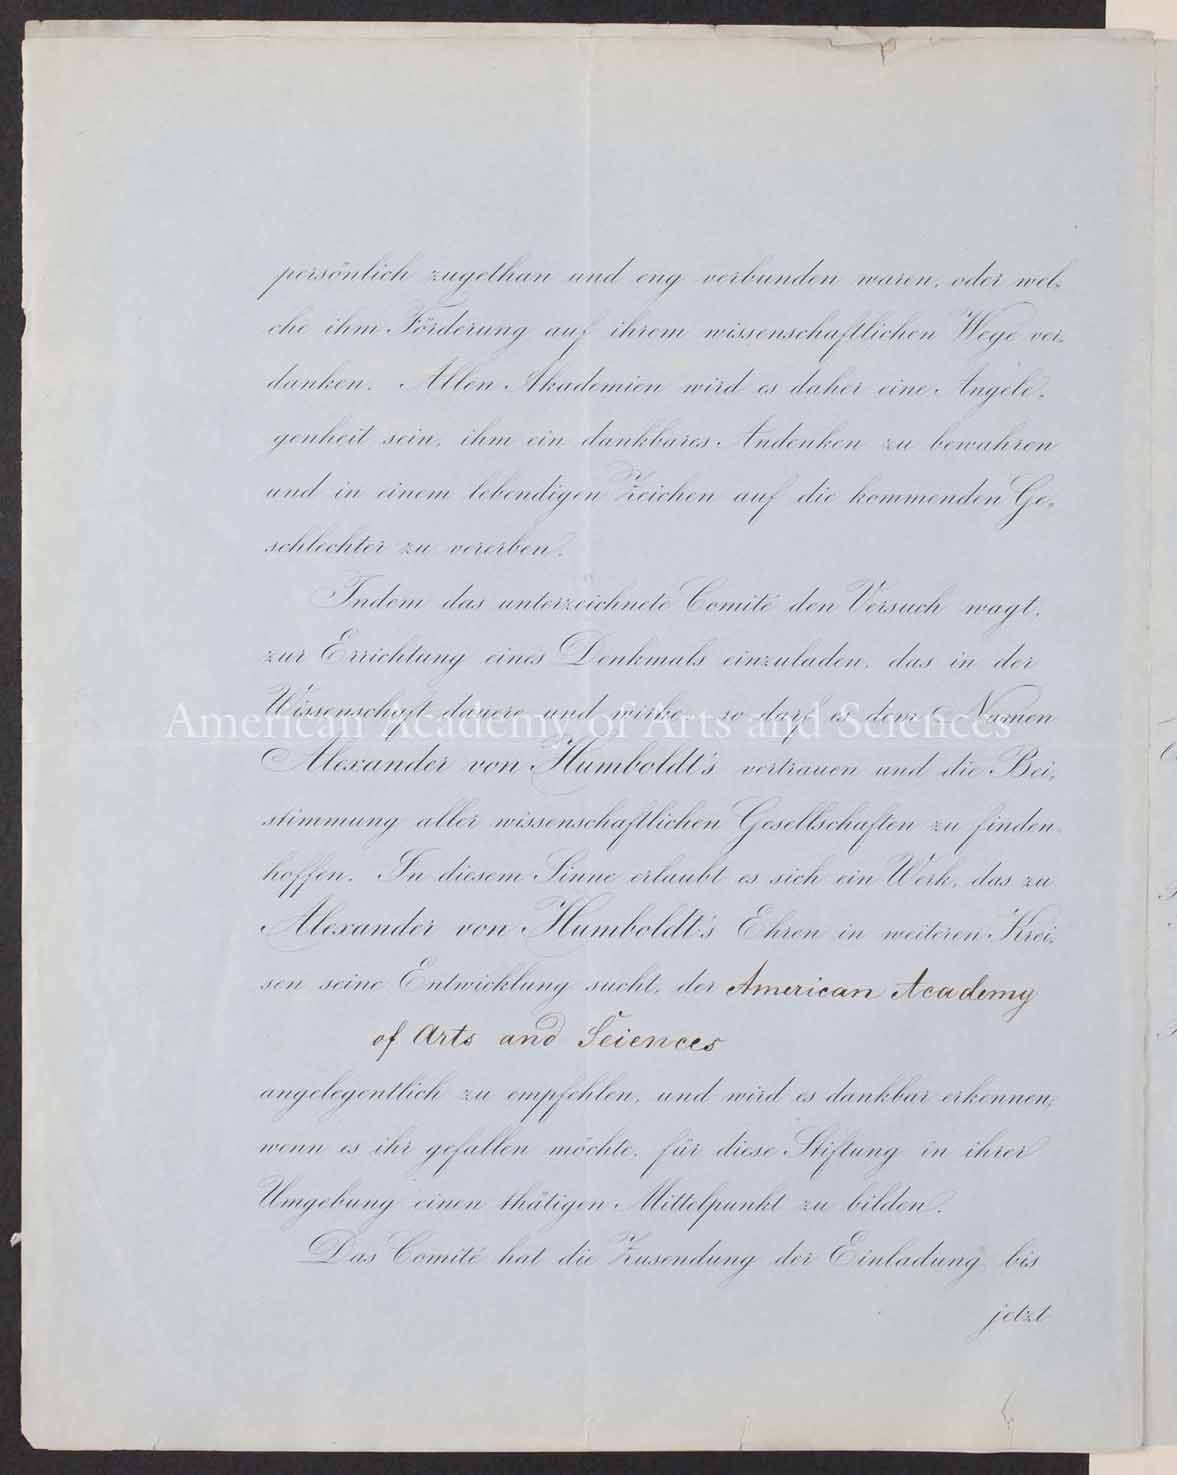 persönlich zugethan und eng verbunden waren, oder wel-
che ihm Förderung auf ihrem wissenschaftlichen Wege ver-
danken. Allen Akademien wird es daher eine Angele-
genheit sein, ihm ein dankbares Andenken zu bewahren
und in einem lebendigen Zeichen auf die kommenden Ge-
schlechter zu vererben.
Indem das unterzeichnete Comité den Versuch wagt,
zur Errichtung eines Denkmals einzuladen, das in der
Wissenschaft dauere und wirke, so darf es dem Namen
American Academy of Arts and Sciences
Alexander von Humboldt's vertrauen und die Bei-
stimmung aller wissenschaftlichen Gesellschaften zu finden
hoffen. In diesem Sinne erlaubt es sich ein Werk, das zu
Alexander von Humboldt's Ehren in weiteren Krei-
sen seine Entwicklung sucht, der American Academy
of Arts and Sciences
angelegentlich zu empfehlen, und wird es dankbar erkennen,
wenn es ihr gefallen möchte, für diese Stiftung in ihrer
Umgebung einen thätigen Mittelpunkt zu bilden.
Das Comité hat die Zusendung der Einladung bis
jetzt